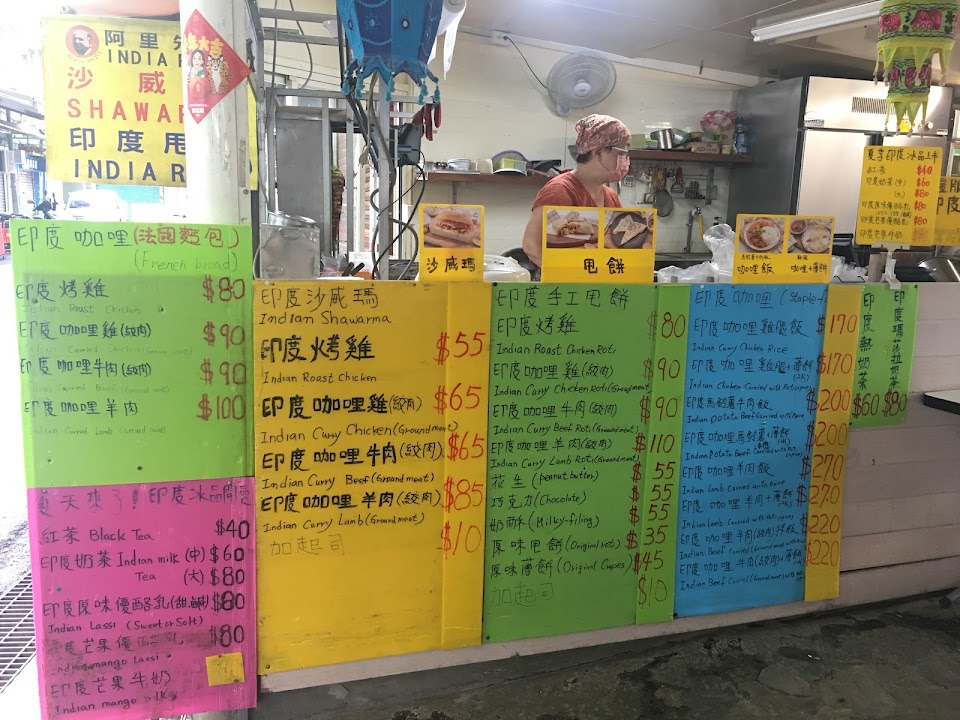 阿里
INDIA
沙威
SHAWAR
印度甩
INDIA R
大吉
印度咖哩(法國麵包)
(French bread)
印度烤雞 $80
Indian Roast Chicken
印度咖哩雞(絞肉) $90
印度咖哩牛肉(絞肉) $90
印度咖哩羊肉 $100
夏天來了!印度冰品開賣
紅茶 Black Tea $40
印度奶茶 Indian milk (中) $60
Tea (大) $80
印度原味優酪乳(甜.鹹) $80
Indian Lassi (Sweet or Salt)
印度芒果優酪乳 $80
Indian mango lassi
印度芒果牛奶
Indian mango milk
沙威瑪
印度沙威瑪
Indian Shawarma
印度烤雞 $55
Indian Roast Chicken
印度咖哩雞(絞肉) $65
Indian Curry Chicken (Ground meat)
印度咖哩牛肉(絞肉) $65
Indian Curry Beef (Ground meat)
印度咖哩羊肉(絞肉) $85
Indian Curry Lamb (Ground meat)
加起司 $10
甩餅
印度手工甩餅
印度烤雞 $80
Indian Roast Chicken Roti
印度咖哩雞(絞肉) $90
Indian Curry Chicken Roti (Ground meat)
印度咖哩牛肉(絞肉) $90
Indian Curry Beef Roti (Ground meat)
印度咖哩羊肉(絞肉) $110
Indian Curry Lamb Roti (Ground meat)
花生 (peanut butter) $55
巧克力 (Chocolate) $55
奶酥 (Milky-filing) $55
原味甩餅 (Original roti) $35
原味薄餅 (Original Crepes) $45
加起司 $10
咖哩飯
咖哩+薄餅
印度咖哩 (Staple f
印度咖哩雞腿飯 $170
Indian Curry Chicken Rice
印度咖哩雞腿+薄餅 $170
印度馬鈴薯牛肉飯 $200
印度咖哩馬鈴薯+薄餅 $200
印度咖哩羊肉飯 $270
印度咖哩羊肉+薄餅 $270
印度咖哩牛肉(絞肉)拌飯 $220
印度咖哩牛肉(絞肉)+薄餅 $220
印度熱奶茶 $60
印度瑪莎拉奶茶 $80
夏季印度冰品上市
紅茶 $40
印度奶茶(中) $60
(大) $80
印度原味優酪乳 $80
印度芒果優酪乳 $80
印度芒果牛奶 $80
印度